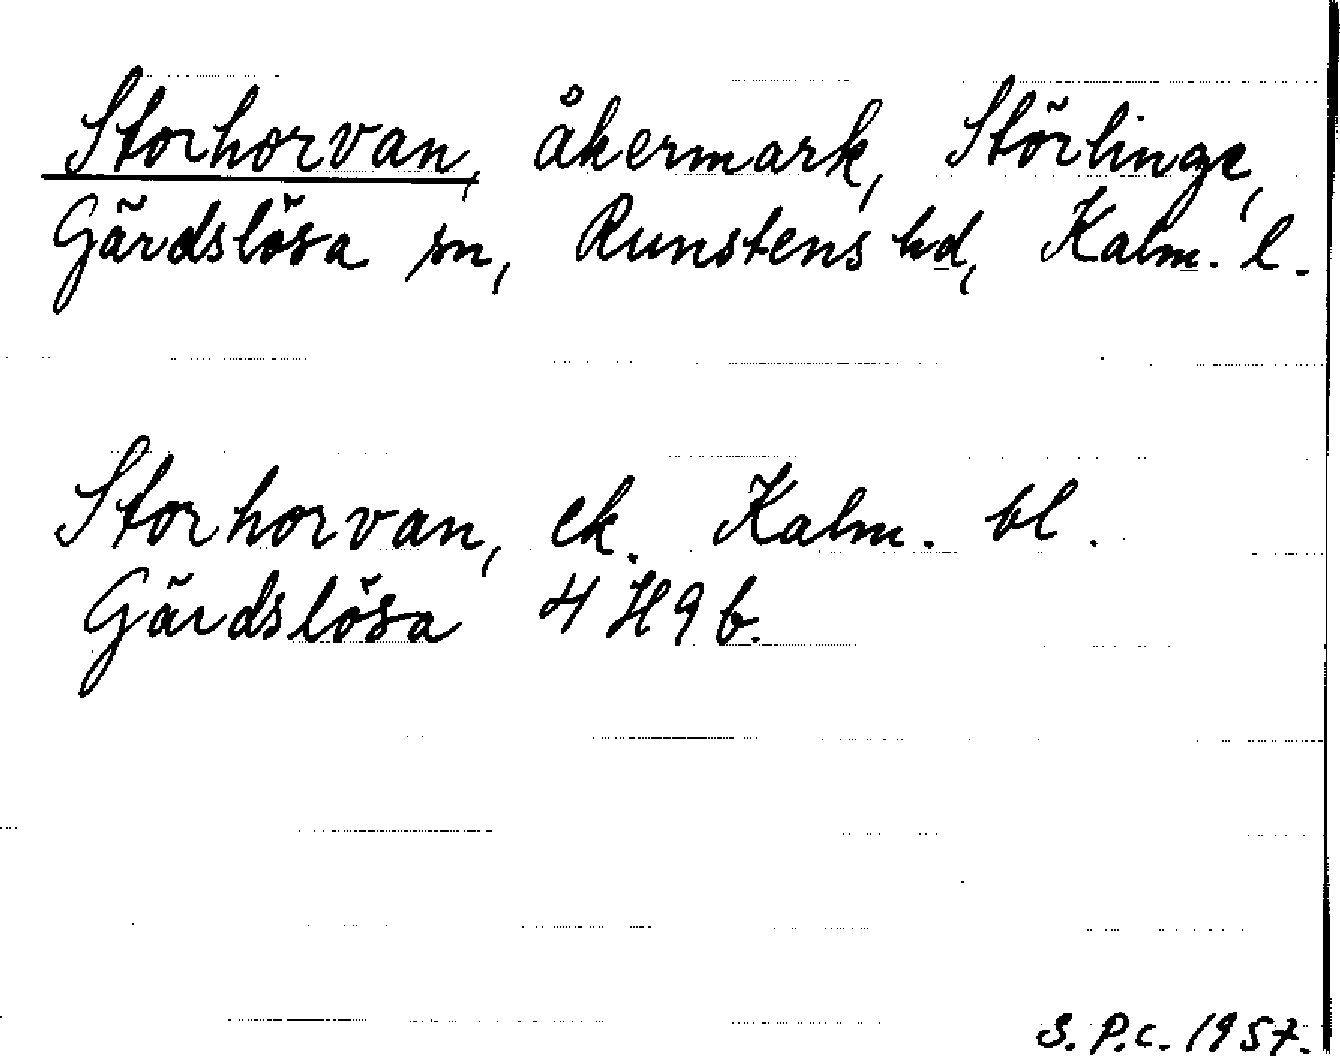 Storhorvan, åkermark, Störlinge,
Gärdslösa sn, Runstens hd, Kalm. l.
Storhorvan, ek. Kalm. bl.
Gärdslösa 4 H 9 b.
S.P.C. 1957.